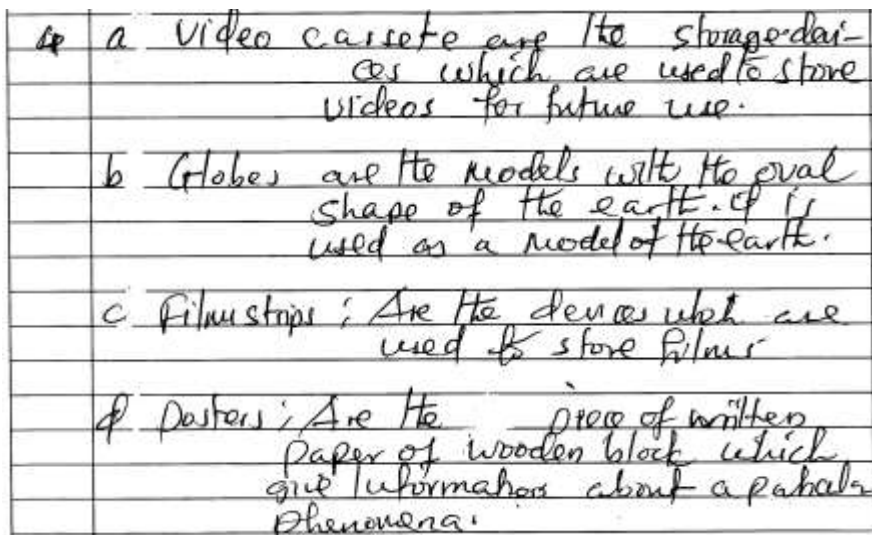 a video cassete are the storage dai-
ces which are used to store
videos for future use.
b Globes are the models with the oval
shape of the earth. It is
used as a model of the earth.
c Filmstrips; Are the devices which are
used to store films
d Posters; Are the piece of written
paper of wooden block which
give Information about a
phenomena.